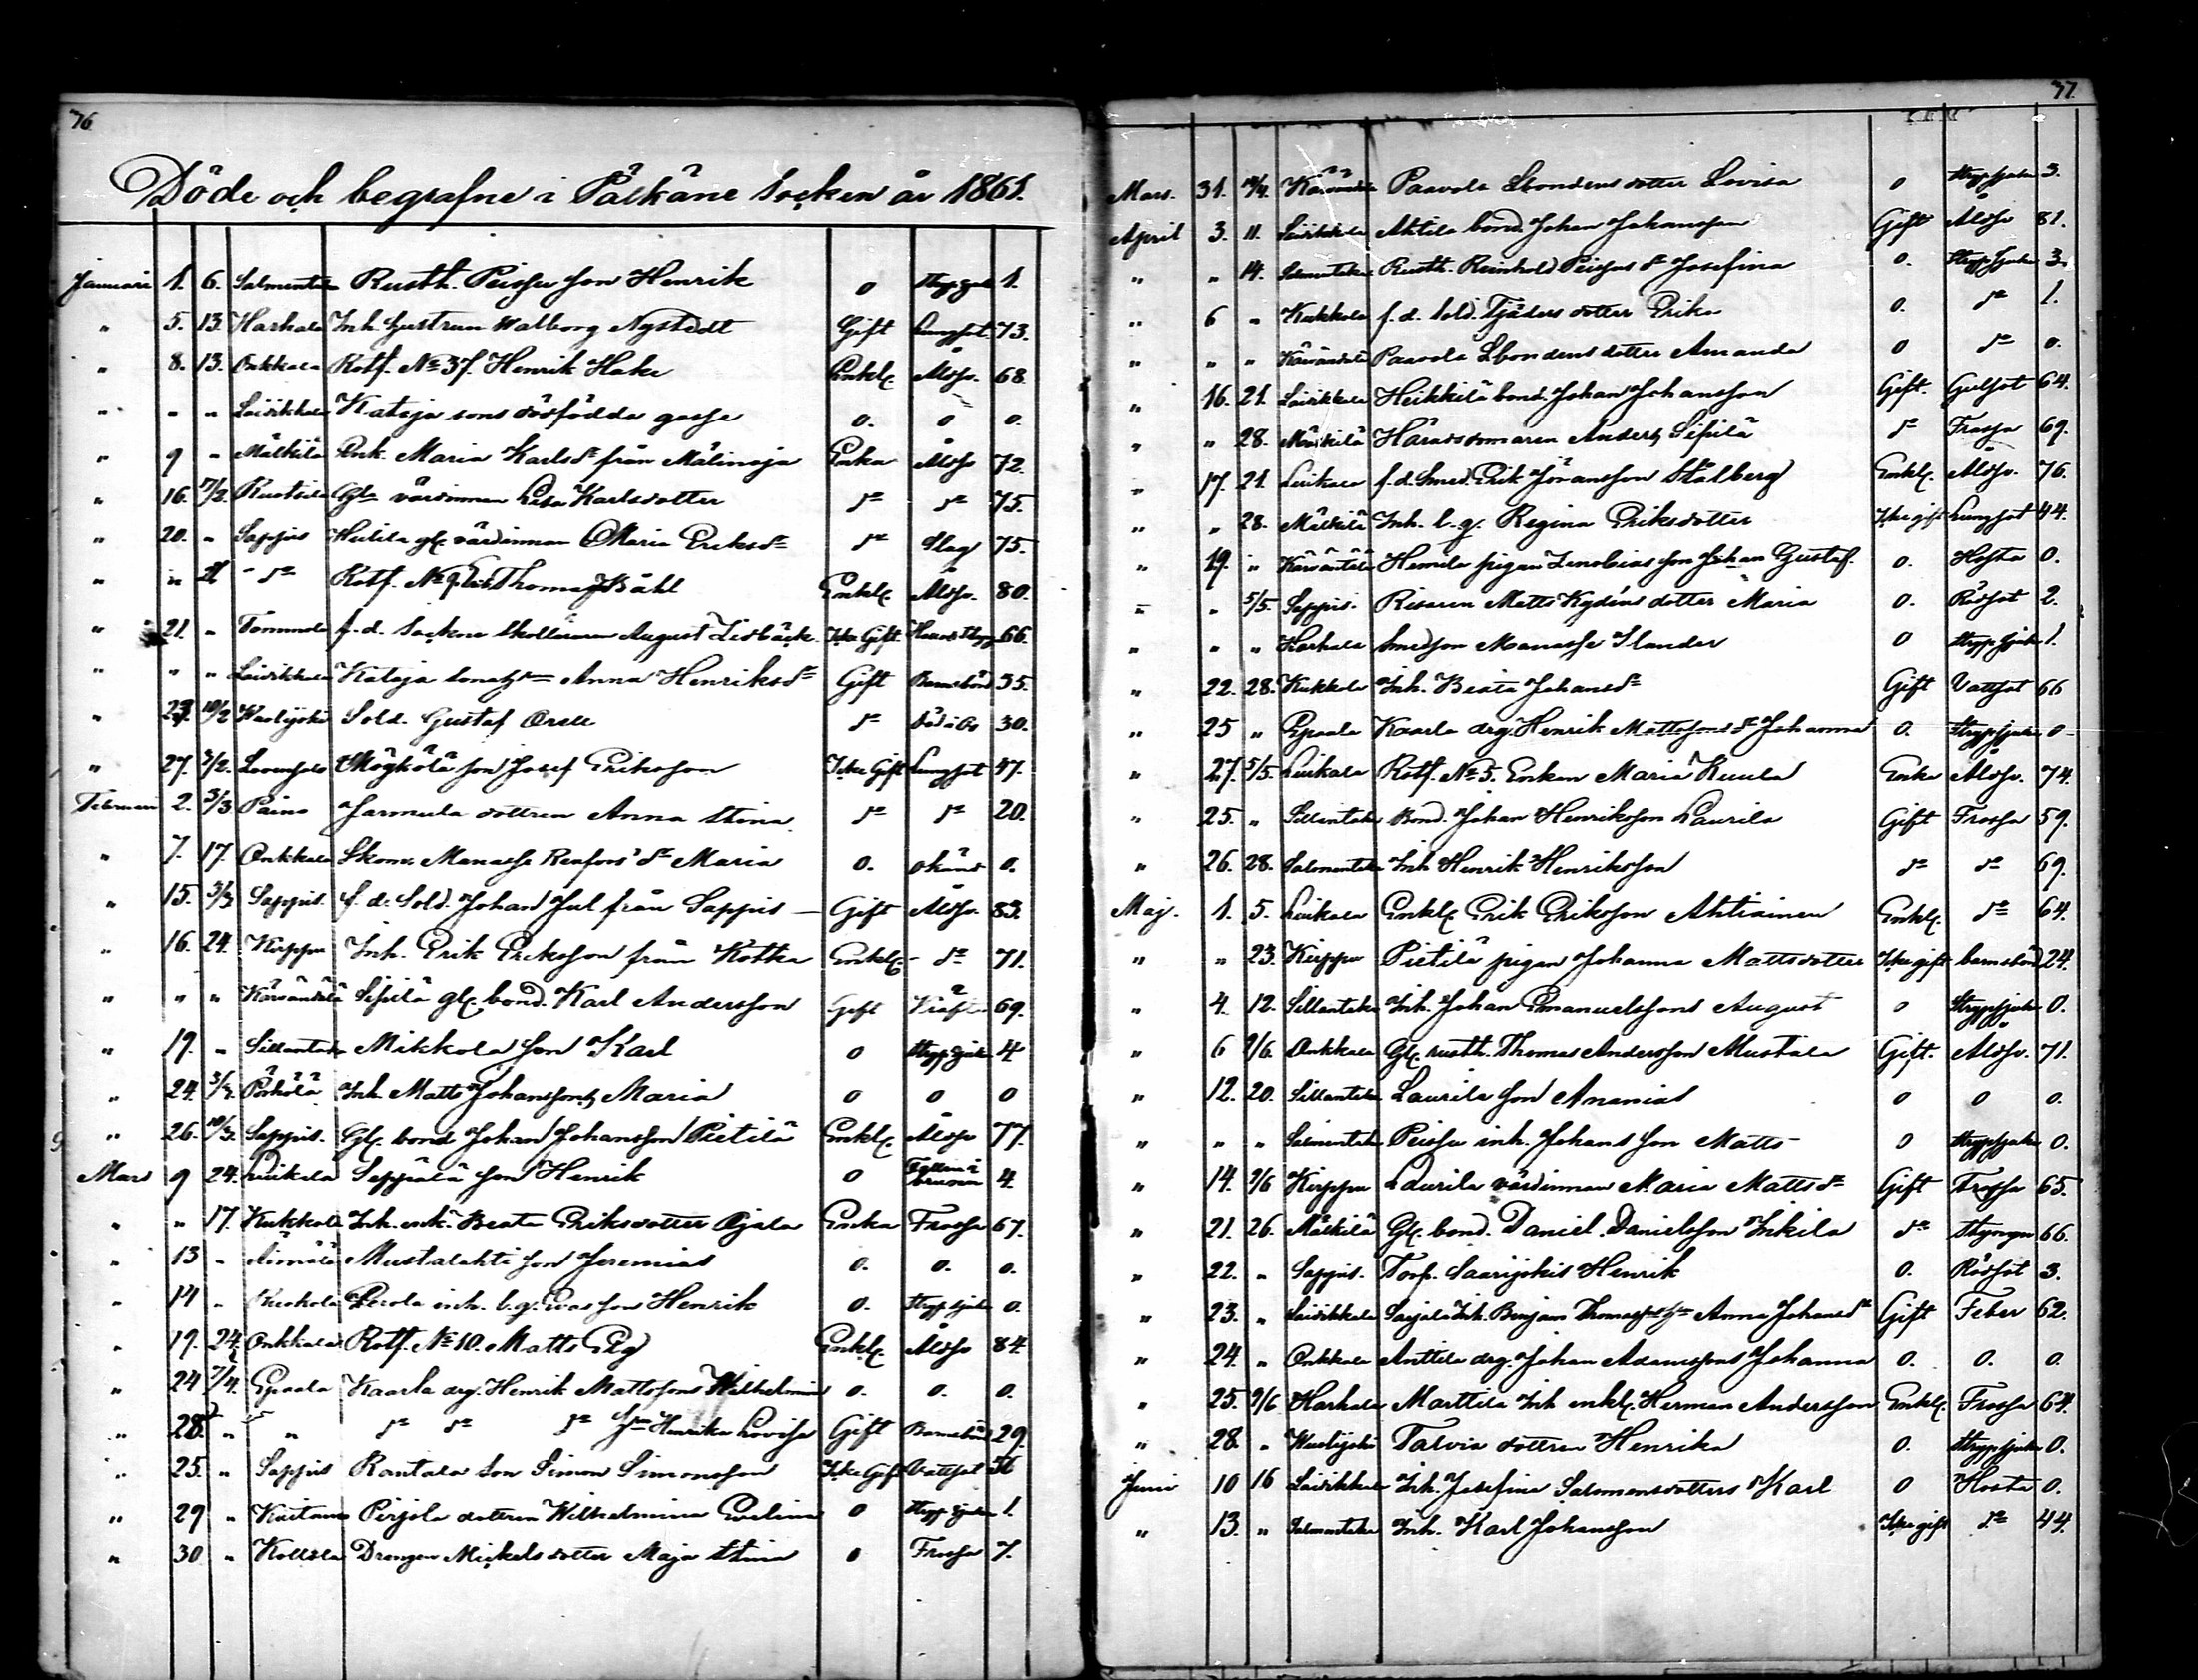 76
Döde och begrafne i Pälkäne Socken år 1861.
Januari 1. 6. Salmentaka Rusth. Peissu son Henrik 0 Strypsjuka 1.
" 5. 13. Harhala Inh. hustrun Walborg Nystedt Gift Lungsot 73.
" 8. 13. Onkkala Rotf. No 37. Henrik Hake Enkl. Åldr. 68
" " " Laivikkala Kataja sons dödfödda gosse 0. 0 0.
" 9 " Mälkilä Enk. Maria Karlsdr från Mälinoja Enka Åldr 72.
" 16. 7/2. Ruotsila Gla värdinnan Lisa Karlsdotter dr dr 75.
" 20. " Sappis Heililä gl. värdinnan Maria Eriksdr dr Slag 75.
" " 21 " dr Rotf. No 9. Thomas Båhl Enkl. Åldr. 80.
" 21. " Tommola f.d. Sockne Skolläraren August Lidbäck Icke Gift. 66.
" " " Laivikkala Kataja sons hu Anna Henriksdr Gift Barnsbörd 35.
" 23. 10/2 Wuolijoki Sold. Gustaf Orre dr 30.
" 27. 3/2. Mögkölä son Josef Eriksson Icke Gift Lungsot 47.
Februari 2. 3/3 Paino Jarmula dottren Anna Stina dr dr 20.
" 7. 17. Onkkala Skom. Manasse Renfors' dr Maria 0. okänd 0.
" 15. 3/3 Sappis. f.d. Sold. Johan Jul från Sappis Gift Åldr. 83.
" 16. 24. Kirppu Inh. Erik Eriksson från Kotka Enkl. dr 71.
" " " Kärväntälä Sipilä gl. bond. Karl Andersson Gift Kräfta 69.
" 19. " Sillantaka Mikkola son Karl 0 Strypsjuka 4
" 24. 3/3. Pohjola Inh. Matts Johanssons Maria 0 0 0
" 26. 10/3. Sappis. Gl. bond Johan Johansson Pietilä Enkl. Åldr 77.
Mars 9 24. Luikala Seppälä son Henrik 0 Fallen i brunn 4.
" " 17. Kukkola Inh. enk. Beata Eriksdotter Ojala Enka Frossa 67.
" 13 " Äimälä Mustalahti son Jeremias 0. 0. 0.
" 14 " Kuohola Perola inh. l.g. Evas son Henrik 0. Strypsjuka 0.
" 19. 24. Onkkala Rotf. No 10. Matts Elg Enkl. Åldr 84.
" 24 7/4. Epaala Kaarla drg. Henrik Mattssons Wilhelmina 0. 0. 0.
" 28. " " dr dr dr hu Henrika Lovisa Gift Barnsbörd 29.
" 25. " Sappis Rantala Son Simon Simonsson Icke Gift Vattsot
" 29 " Kaitamo Pirjola dottren Wilhelmina Evelina 0 Strypsjuka 1.
" 30 " Kollola Drengen Mickels dotter Maja Stina 0 Frossa 7.
77.
Mars. 31. 14/4. Kärväntälä Paavola Lbondens dotter Lovisa 0 Strypsjuka 3.
April 3. 11. Laivikkala Ahtila bond. Johan Johansson Gift Åldr 81.
" " 14. Salmentaka Rusth. Reinhold Peissus dr Josefina 0. Strypsjuka 3.
" 6 " Kukkola f.d. Sold. Tjäders dotter Erika 0. dr 1.
" " " Kärväntälä Paavola Lbondens dotter Amanda 0 dr 0.
" 16. 21. Laivikkala Heikkilä bond. Johan Johansson Gift. Gulsot 64.
" " 28. Mälkilä Häradsdomaren Anders Sipilä dr Frossa 69.
" 17. 21. Luikala f.d. Smed. Erik Jöransson Stålberg Enkl. Åldr. 76.
" " 28. Mälkilä Inh. l.g. Regina Eriksdotter Icke gift Lungsot 44.
" 19. " Kärväntälä Hemilä pigan Zenobias son Johan Gustaf. 0. Hosta 0.
" " 5/5. Sappis. Risaren Matts Kydéns dotter Maria 0. Rödsot 2.
" " " Harhala Smedson Manasse Ilander 0 Strypsjuka 1.
" 22. 28. Kukkola Inh. Beata Johansdr Gift Vattsot 66
" 25 " Epaala Kaarla drg. Henrik Mattssons dr Johanna 0. Strypsjuka 0
" 27. 5/5. Luikala Rotf. No 5. Enkan Maria Kuula Enka Åldr. 74.
" 25. " Sillantaka Bond. Johan Henriksson Laurila Gift Frossa 59.
" 26. 28. Salmentaka Inh Henrik Henriksson dr dr 69.
Maj. 1. 5. Luikala Enkl. Erik Eriksson Ahtiainen Enkl. dr 64.
" " 23. Kirppu Pietilä pigan Johanna Mattsdotter Icke gift barnsbörd 24.
" 4. 12. Sillantaka Inh. Johan Emanuelssons August 0 Strypsjuka 0.
" 6 2/6. Onkkala Gl. rusth. Thomas Andersson Mustala Gift. Åldr. 71.
" 12. 20. Sillantaka Laurila son Ananias 0 0 0.
" " " Salmentaka Peissu inh. Johans son Matts 0 Strypsjuka 0.
" 14. 2/6 Kirppu Laurila värdinnan Maria Mattsdr Gift Frossa 65.
" 21. 26. Mälkilä Gl. bond. Daniel Danielsson Inkilä dr 66.
" 22. " Sappis. Torp. Saarijokis Henrik 0. Rödsot 3.
" 23. " Laivikkala Sarjala Inh. Benjam Thomass. hu Anna Johansdr Gift Feber 62.
" 24. " Onkkala Anttila drg. Johan Adamssons Johanna 0. 0. 0
" 25. 2/6 Harhala Marttila Inh enkl. Herman Andersson Enkl. Frossa 64.
" 28. " Wuolijoki Talvia dottren Henrika 0. Strypsjuka 0.
Juni 10 16 Laivikkala Inh. Josefina Salomonsdotters Karl 0 Hosta 0.
" 13. " Salmentaka Inh. Karl Johansson Icke gift dr 44.